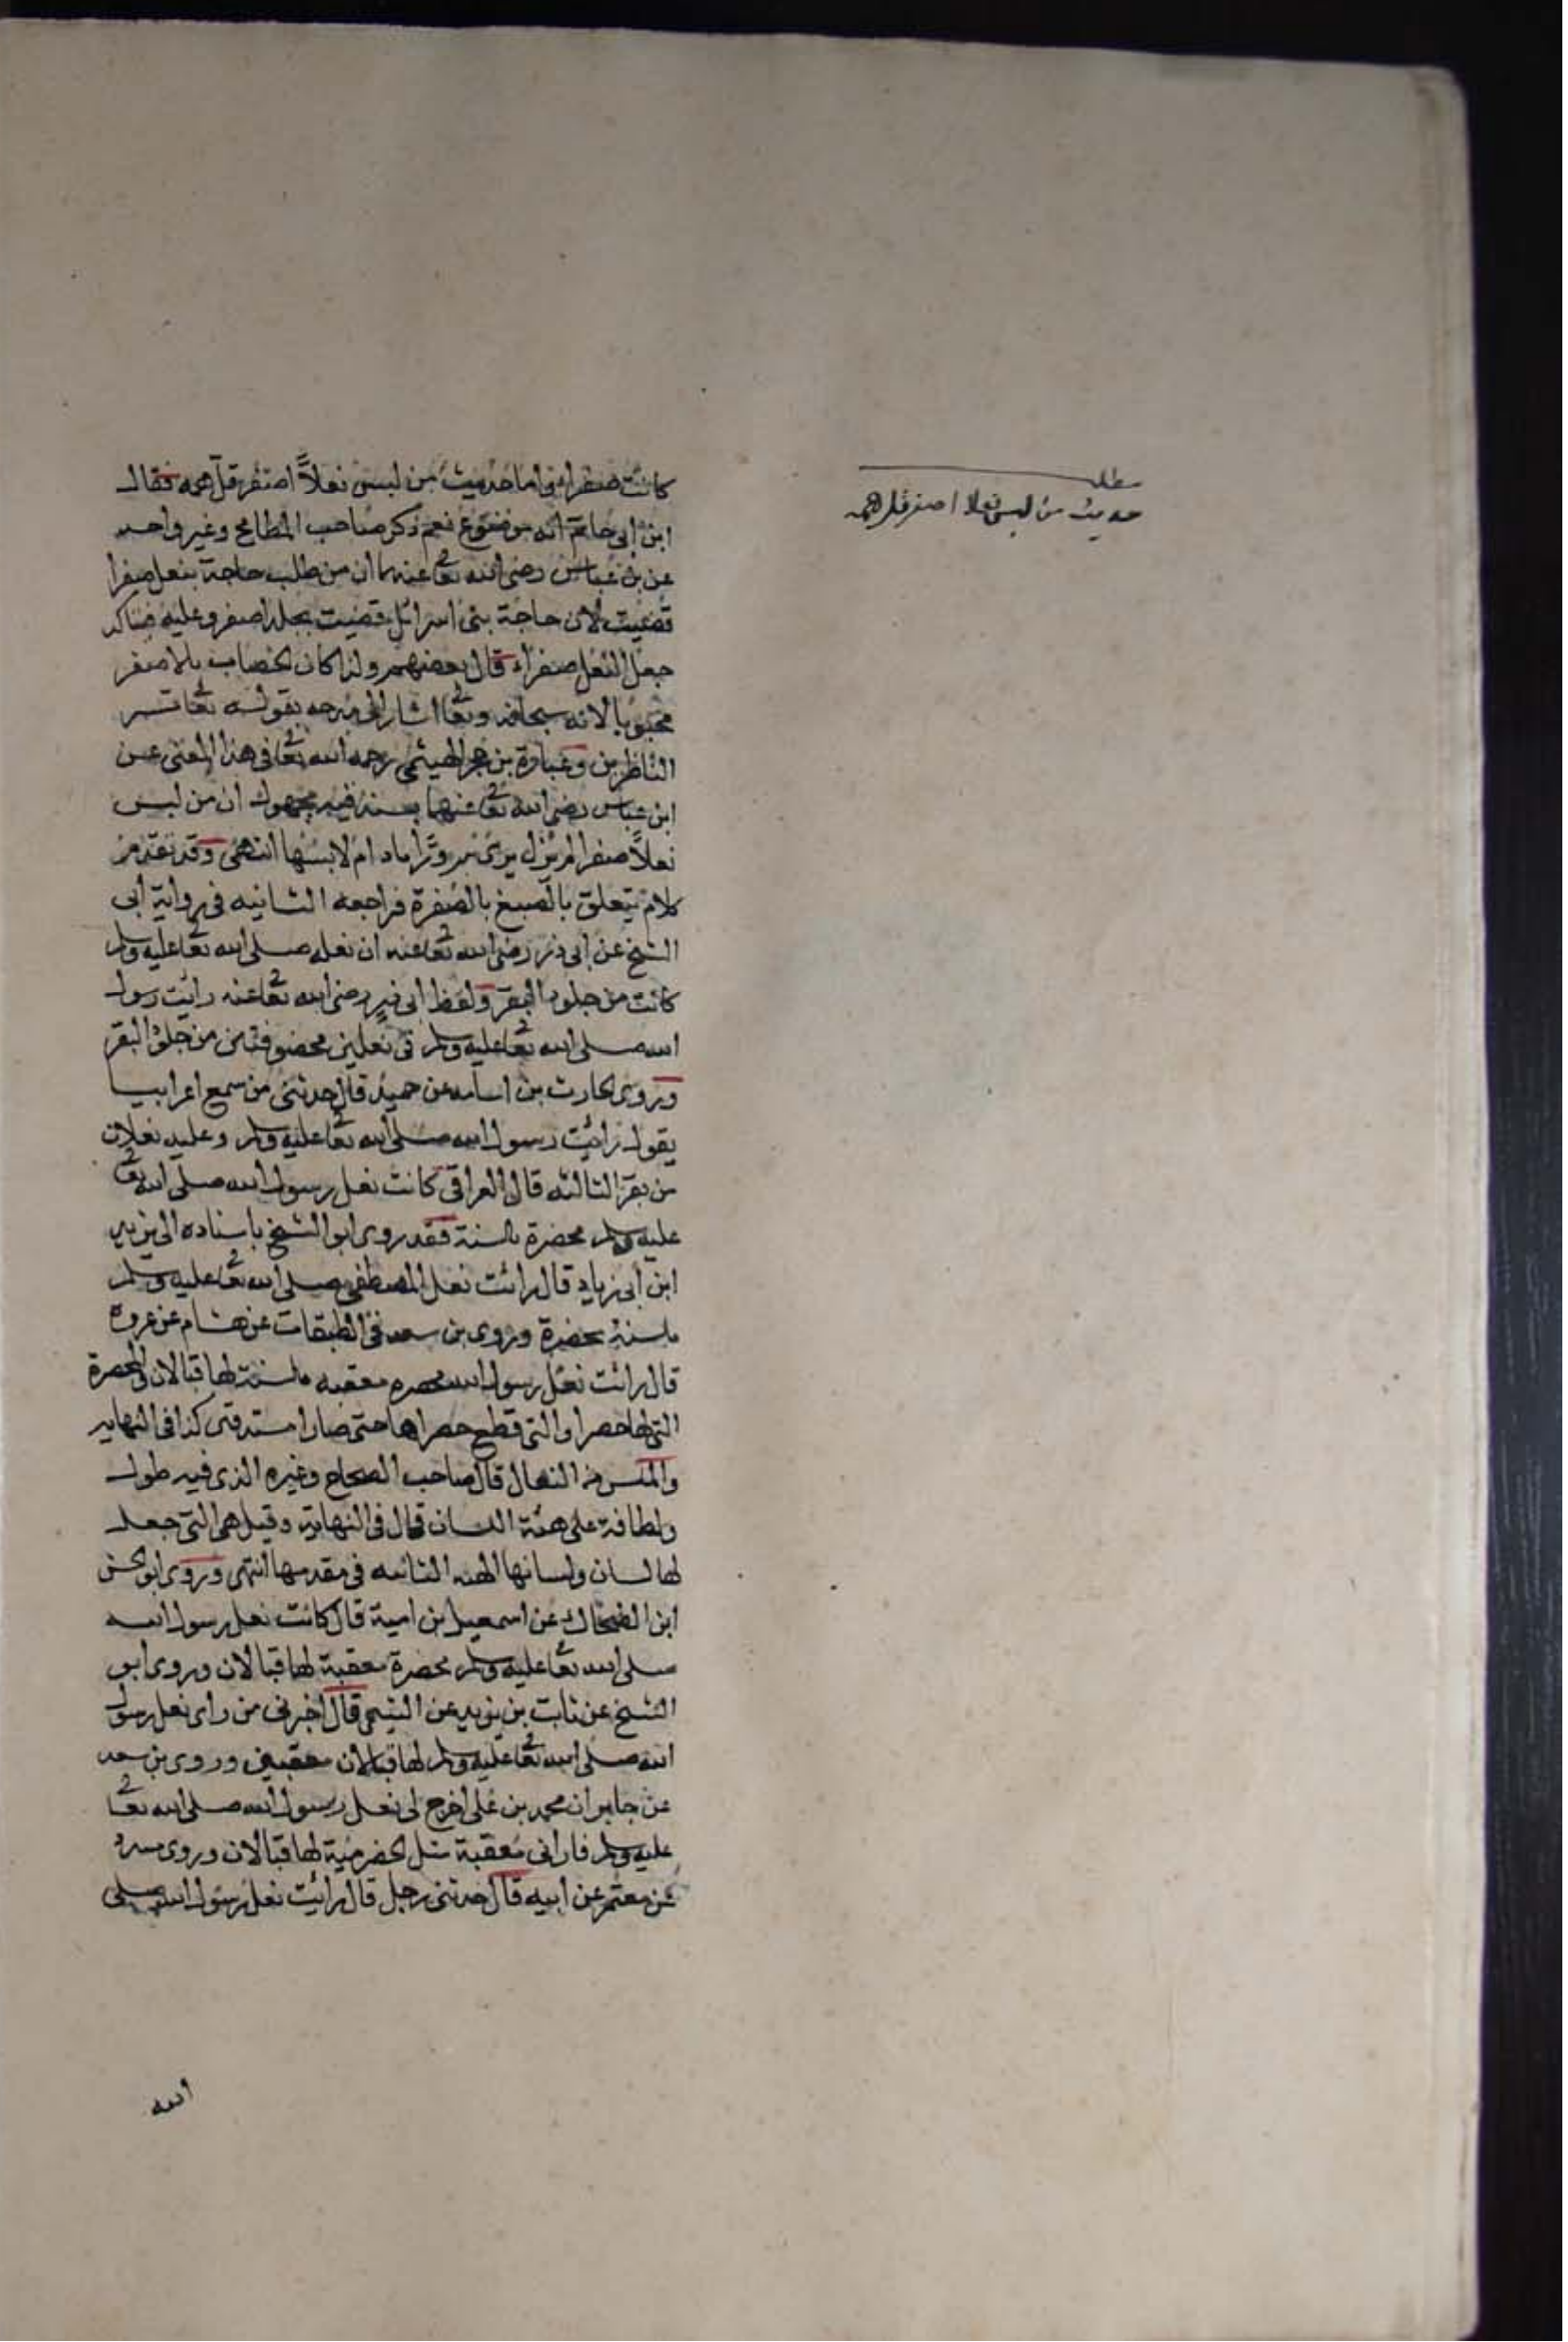 مطلب
حديث من لبس نعلا اصفر قل همه
كانت صفراء واما حديث من لبس نعلاً اصفر قل همه فقال
ابن ابى حاتم انه موضوع نعم ذكر صاحب المطامح وغير واحد
عن بن عباس رضى الله تعا عنهما ان من طلب حاجة بنعل صفرا
قضيت لان حاجة بنى اسرائل قضيت بجلد اصفر وعليه فتاكد
جعل النعل صفراء قال بعضهم ولذا كان لخضاب بالاصفر
محبوبا لانه سبحانه وتعا اشار الى مدحه بقوله تعا تسر
الناظرين وعبارة بن حجر الهيثمى رحمه الله تعا فى هذا المعنى عن
ابن عباس رضى الله تعا عنهما بسند فيه مجهول ان من لبس
نعلاً صفرا لم يزل يرى سروراً ما دام لابسها انتهى وقد تقدم
كلام يتعلق بالصبغ بالصفرة فراجعه الثانيه فى رواية ابى
الشيخ عن ابى ذر رضى الله تعا عنه ان نعله صلى الله تعا عليه وسلم
كانت من جلود البقر ولفظ ابى ذر رضى الله تعا عنه رائت رسول
الله صلى الله تعا عليه وسلم فى نعلين مخصوفتين من جلود البقر
وروى لحارث بن اسامه عن حميد قال حدثنى من سمع اعرابيا
يقول رائت رسول الله صلى الله تعا عليه وسلم وعليه نعلان
من بقر الثالثه قال العراقى كانت نعل رسول الله صلى الله تعا
عليه وسلم مخصرة ملسنة فقد روى ابو الشيخ باسناده الى يزيد
ابن ابى زياد قال رائت نعل المصطفى صلى الله تعا عليه وسلم
ملسنة مخصرة وروى بن سعد فى الطبقات عن هشام عن عروه
قال رائت نعل رسول الله مخصره معقبه ملسنة لها قبالان والمخصرة
التى لها خصر او التى قطع خصراها حتى صارا مستدقين كذا فى النهايه
والملسن من النعال قال صاحب الصحاح وغيره الذى فيه طول
ولطافة على هيئة اللسان قال فى النهاية وقيل هى التى جعل
لها لسان ولسانها الهنه الناتئه فى مقدمها انتهى وروى ابو لحسن
ابن الضحاك عن اسمعيل بن امية قال كانت نعل رسول الله
صلى الله تعا عليه وسلم مخصرة معقبة لها قبالان وروى ابو
الشيخ عن ثابت بن يزيد عن التيمى قال اخبرنى من راى نعل رسول
الله صلى الله تعا عليه وسلم لها قبالان معقبين وروى بن سعد
عن جابر ان محمد بن على اخرج لى نعل رسول الله صلى الله تعا
عليه وسلم فارانى معقبة مثل لحضرمية لها قبالان وروى مسدد
عن معتمر عن ابيه قال حدثنى رجل قال رائت نعل رسول الله صلى
الله